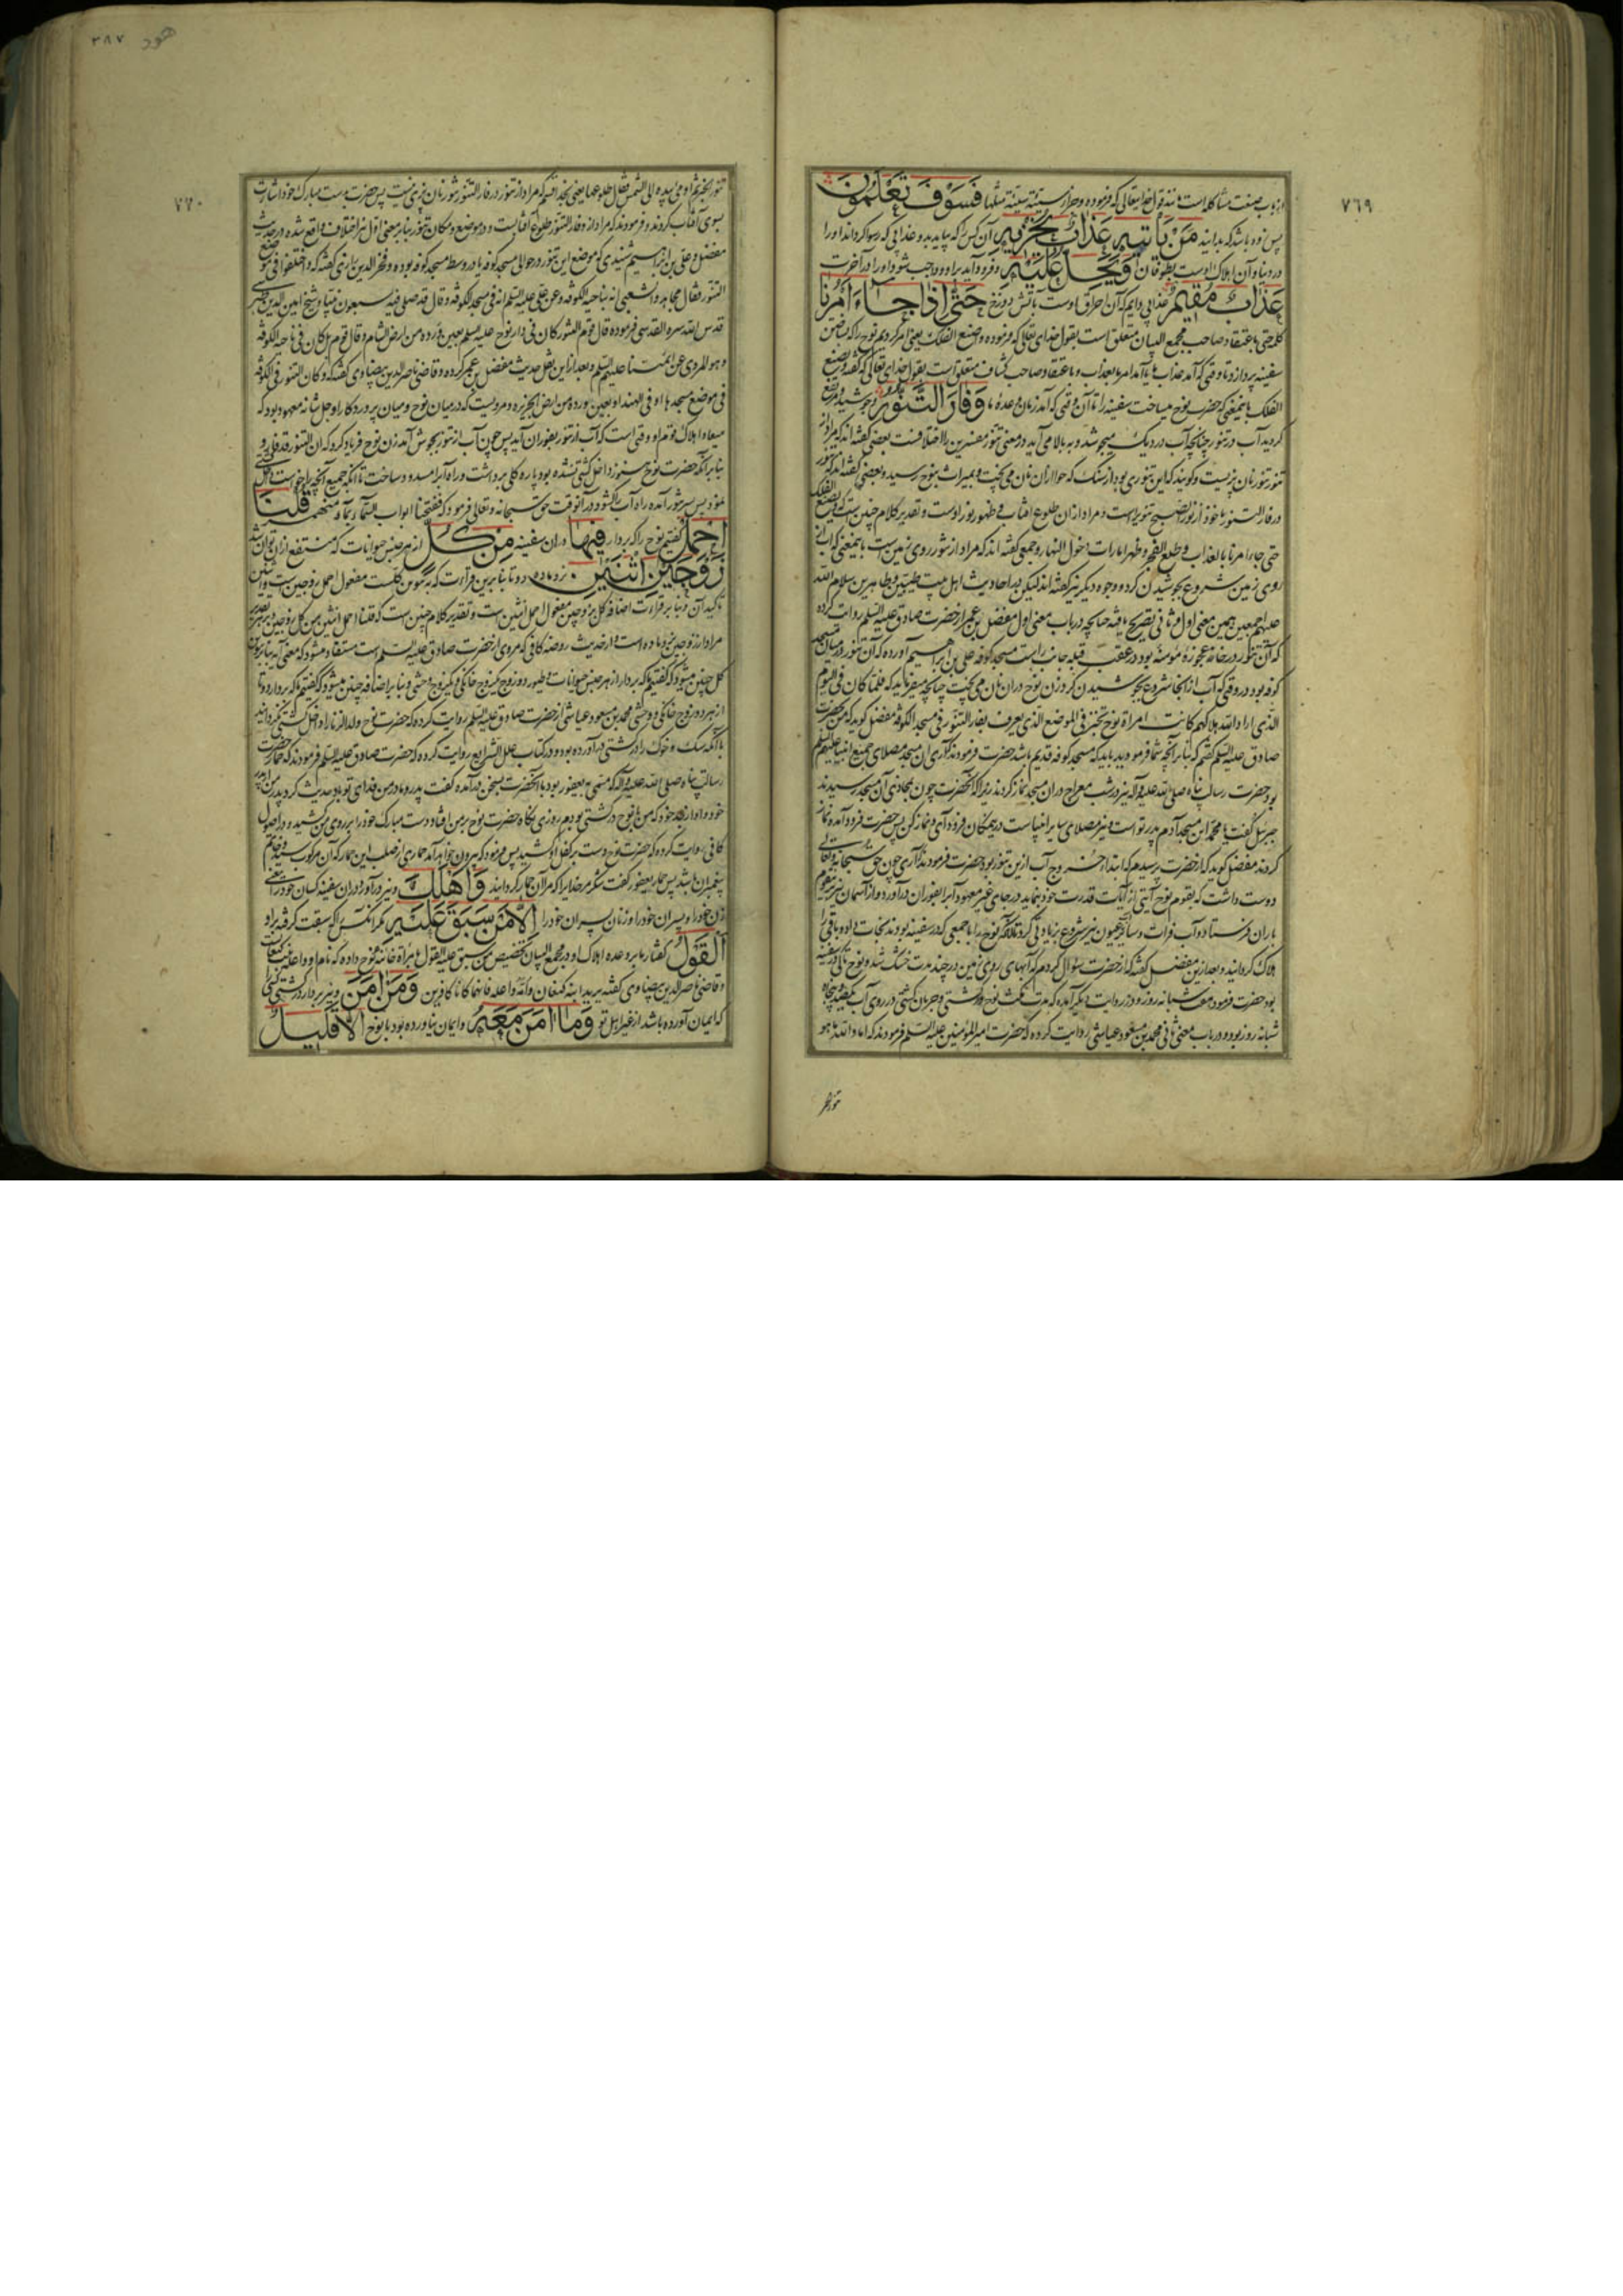 ٧٦٩
از باب صنعت مشاکله است مانند قول خدایتعالی که فرموده وجزاء سیئة سیئة مثلها فَسَوْفَ تَعْلَمُونَ
پس زود باشد که بدانید مَنْ یَأْتِیهِ عَذَابٌ یُخْزِیهِ آن کس را که بیاید بدو عذابی که رسوا گرداند او را
در دنیا و آن هلاک اوست بطوفان وَیَحِلُّ عَلَیْهِ و فرود آید بر او و واجب شود او را در آخرت
عَذَابٌ مُقِیمٌ عذابی دایم که آن احراق اوست بآتش دوزخ حَتّٰی إِذَا جَاءَ أَمْرُنَا
کلمه حتی باعتقاد صاحب مجمع البیان متعلق است بقول خدای تعالی که فرموده واصنع الفلک یعنی امر کردیم نوح را که بساختن
سفینه پردازد تا وقتی که آمد عذاب ما یا آمد امر ما بعذاب و باعتقاد صاحب کشاف متعلق است بقول خدای تعالی که گفته ویصنع
الفلک باینمعنی که حضرت نوح میساخت سفینه را تا آن وقتی که آمد زمان وعده ما وَفَارَ التَّنُّورُ و جوشید و مرتفع
گردید آب در تنور چنانچه آب در دیک میجوشد و به بالا می آید و در معنی تنور مفسرین را اختلافست بعضی گفته اند که مراد از
تنور تنور نان پزیست و گویند که این تنوری بود از سنک که حوا از ان نان می پخت و بمیراث بنوح رسید و بعضی گفته اند که تنور
در فار التنور ماخوذ از نور الصبح تنویر است و مراد از ان طلوع آفتاب و ظهور نور اوست و تقدیر کلام چنین است که ویصنع الفلک
حتی جاء امرنا بالعذاب وطلع الفجر وظهر امارات دخول النهار و جمعی گفته اند که مراد از تنور روی زمین است باینمعنی که آب از
روی زمین شروع بجوشیدن کرد و وجوه دیگر نیز گفته اند لیکن در احادیث اهل بیت طیبین و طاهرین سلام الله
علیهم اجمعین همین معنی اول و ثانی تصریح یافته چنانچه در باب معنی اول مفضل بن عمر از حضرت صادق علیه السلم روایت کرده
که آن تنور در خانه عجوزه مؤمنه بود در عقب قبله جانب راست مسجد کوفه علی بن ابراهیم آورده که آن تنور در میان مسجد
کوفه بود در وقتی که آب از انجا شروع بجوشیدن کرد زن نوح دران نان می پخت چنانچه میفرماید که فلما کان فی الیوم
الذی اراد الله هلاکهم کانت امراة نوح تخبز فی الموضع الذی یعرف بفار التنور فی مسجد الکوفه مفضل گوید که من بحضرت
صادق علیه السلم گفتم که بنا بر آنچه شما فرمودید باید که مسجد کوفه قدیم باشد حضرت فرمودند که آری ان مسجد مصلای جمیع انبیا علیهم السلم
بود حضرت رسالت پناه صلی الله علیه وآله نیز در شب معراج دران مسجد نماز کردند زیرا که آنحضرت چون بمحاذی آن مسجد رسیدند
جبرئیل گفت یا محمد این مسجد آدم پدر تو است و نیز مصلای سایر انبیاست درین مکان فرود آی و نماز کن پس حضرت فرود آمده نماز
کردند مفضل گوید که از حضرت پرسیدم که ابتداء خروج آب ازین تنور بود حضرت فرمودند که آری چون حق سبحانه وتعالی
دوست داشت که بقوم نوح آیتی از آیات قدرت خود بنماید در جای غیر معهود آب را بفوران درآورد و از آسمان نیز
باران فرستاد و آب فرات و سایر عیون نیز شروع بزیادتی کرد تا آنکه نوح را با جمعی که در سفینه بودند نجات داد و باقی را
هلاک گردانید و بعد ازین مفضل گفته که از حضرت سؤال کردم که آبهای روی زمین در چند مدت خشک شد و نوح تا کی در سفینه
بود حضرت فرمود هفت شبانه روز و در روایت دیگر آمده که مدت مکث نوح در کشتی و جریان کشتی در روی آب یکصد و پنجاه
شبانه روز بود و در باب معنی ثانی محمد بن مسعود عیاشی روایت کرده که حضرت امیر المؤمنین علیه السلم فرمودند که اما والله ما هو
هود ٣٨٧
٧٧٠
تنور الخبز ثم اومی بیده الی الشمس فقال طلوعها یعنی بخدا قسم که مراد از تنور در فار التنور تنور نان پزی نیست پس حضرت بدست مبارک خود اشارت
بسوی آفتاب کردند و فرمودند که مراد از وفار التنور طلوع آفتابست و در موضع و مکان تنور بنا بر معنی اول نیز اختلاف واقع شده در حدیث
مفضل و علی بن ابراهیم شنیدی که موضع این تنور در حوالی مسجد کوفه یا در وسط مسجد کوفه بوده و فخر الدین رازی گفته که واختلفوا فی موضع
التنور فقال مجاهد والشعبی انه بناحیة الکوفه وعن علی علیه السلم انه فی مسجد الکوفه وقال قد صلی فیه سبعون نبیا و شیخ امین الدین طبرسی
قدس الله سره القدسی فرموده قال قوم التنور کان فی دار نوح علیه السلم بعین وردة من ارض الشام وقال قوم بل کان فی ناحیة الکوفه
وهو المروی عن ائمتنا علیهم السلم و بعد ازاین نقل حدیث مفضل بن عمر کرده و قاضی ناصر الدین بیضاوی گفته که وکان التنور فی الکوفه
فی موضع مسجدها او فی الهند او بعین وردة من ارض الجزیره و مرویست که در میان نوح و میان پروردگار او جل شانه معهود بود که
میعاد هلاک قوم او وقتی است که آب از تنور بفوران آید پس چون آب از تنور بجوش آمد زن نوح فریاد کرد که ان التنور قد فار و
بنا بر آنکه حضرت نوح هنوز داخل کشتی نشده بود پاره گلی برداشت و راه آب را مسدود ساخت تا آنکه جمیع آنچه را خواست داخل کشتی
نمود پس بر سر تنور آمده راه آب را گشود و در آنوقت حق سبحانه و تعالی فرمود که ففتحنا ابواب السماء بماء منهمر قُلْنَا
احْمِلْ گفتیم نوح را که بردار فِیهَا دران سفینه مِنْ کُلٍّ از هر جنس حیوانات که منتفع ازان توان شد
زَوْجَیْنِ اثْنَیْنِ نر و ماده دو تا بنا برین قراءت که بتنوین کلست مفعول احمل زوجین است و اثنین
تاکید آن و بنا بر قراءت اضافه کل بزوجین مفعول احمل اثنین است و تقدیر کلام چنین است که قلنا احمل اثنین من کل زوجین و بهر تقدیر
مراد از زوجین نر و ماده است و از حدیث روضه کافی که مروی از حضرت صادق علیه السلم است مستفاد میشود که معنی آیه بنا بر تنوین
کل چنین میشود که گفتیم که بردار از هر جنس حیوانات و طیور دو زوج یکزوج خانگی و یکزوج وحشی و بنا بر اضافه چنین میشود که گفتیم که بردار دو تا
از هر دو زوج خانگی و وحشی محمد بن مسعود عیاشی از حضرت صادق علیه السلم روایت کرده که حضرت نوح ولد الزنا را داخل کشتی نگردانید
با آنکه سک و خوک را در کشتی درآورده بود و در کتاب علل الشرایع روایت کرده که حضرت صادق علیه السلم فرمودند که حمار حضرت
رسالت پناه صلی الله علیه وآله که مسمی به یعفور بود با آنحضرت بسخن درآمده گفت پدر و مادر من فدای تو باد حدیث کرد پدر من از پدر
خود و او از جد خود که من با نوح در کشتی بودم روزی نگاه حضرت نوح بر من افتاد دست مبارک خود را بر روی من کشید و در اصول
کافی روایت کرده که حضرت نوح دست بر کفل او کشید پس فرمود که بیرون خواهد آمد حماری از صلب این حمار که آن مرکوب سید و خاتم
پیغمبران باشد پس حمار یعفور گفت شکر مر خدا را که مرا آن حمار گردانید وَأَهْلَکَ و نیز درآور دران سفینه کسان خود را یعنی
زن خود را و پسران خود را و زنان پسران خود را إِلَّا مَنْ سَبَقَ عَلَیْهِ مگر آنکس را که سبقت گرفته بر او
الْقَوْلُ گفتار ما بر وعده اهلاک او در مجمع البیان تخصیص من سبق علیه القول بامراة خائنه نوح داده که نام او واعله است
و قاضی ناصر الدین بیضاوی گفته یرید ابنه کنعان وامه واعله فانهما کانا کافرین وَمَنْ آمَنَ و نیز بردار در کشتی کسی را
که ایمان آورده باشد از غیر اهل تو وَمَا آمَنَ مَعَهُ و ایمان نیاورده بود با نوح إِلَّا قَلِیلٌ